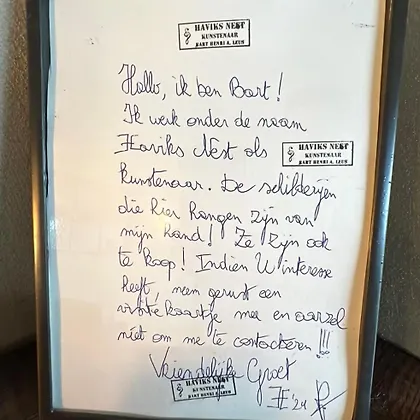 HAVIKS NEST
KUNSTENAAR
BART HENRI A. LEUS
Hallo, ik ben Bart!
Ik werk onder de naam
Haviks Nest als
HAVIKS NEST
KUNSTENAAR
BART HENRI A. LEUS
kunstenaar. De schilderijen
die hier hangen zijn van
mijn hand! Ze zijn ook
te koop! Indien U interesse
heeft, neem gerust een
visitekaartje mee en aarzel
niet om me te contacteren!!!
Vriendelijke Groet
HAVIKS NEST
KUNSTENAAR
BART HENRI A. LEUS
'24